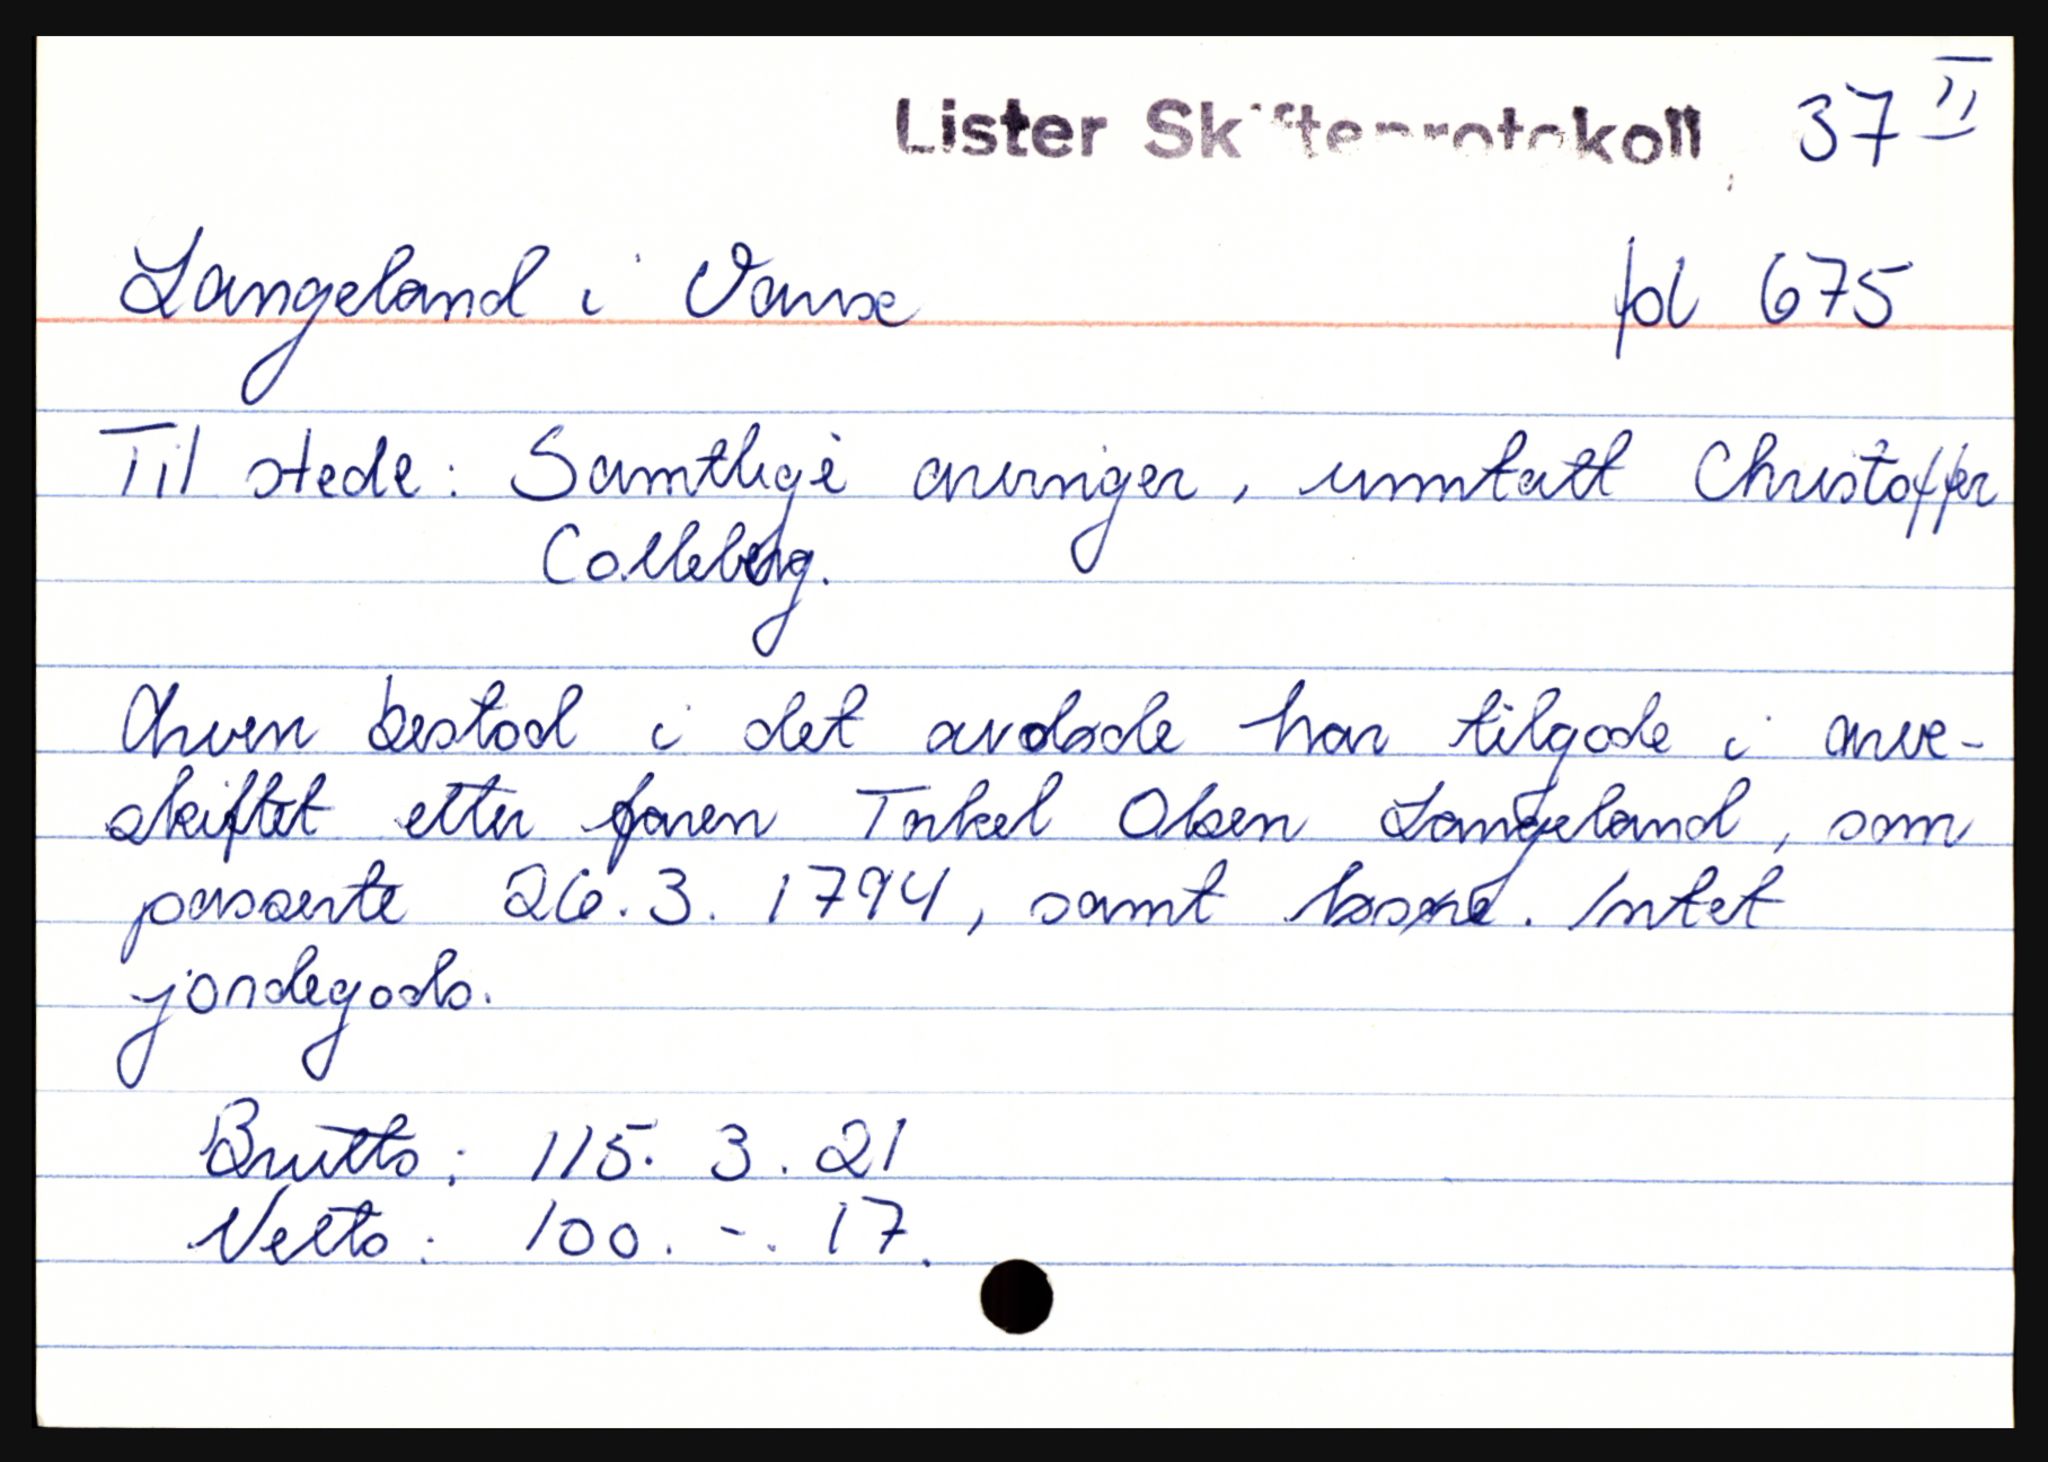 Lister Skifteprotokoll 37 II
Langeland i Vanse fol 675
Til stede: Samtlige arvinger, unntatt Christoffer
Calleberg.
Arven bestod i det avdøde har tilgode i arve-
skiftet etter faren Torkel Olsen Langeland, som
passerte 26.3.1794, samt løsøre. Intet
jordegods.
Brutto: 115. 3. 21
Netto: 100. -. 17.